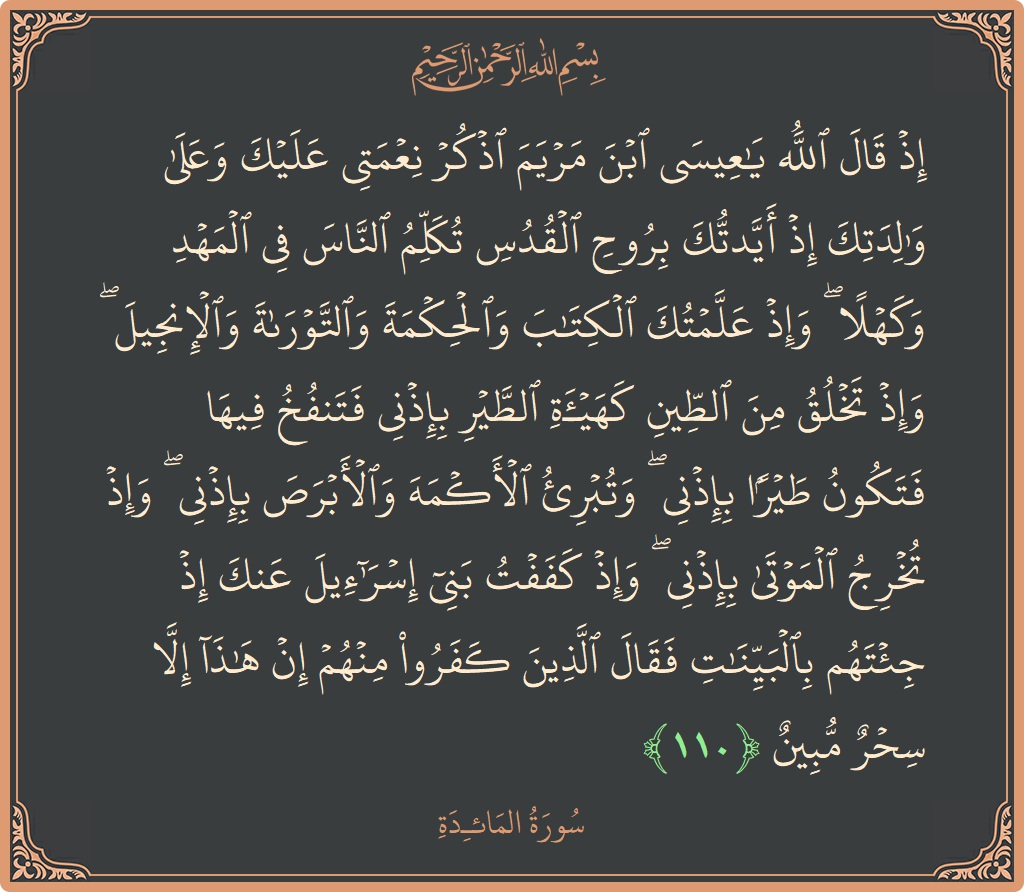 بِسْمِ اللَّهِ الرَّحْمَٰنِ الرَّحِيمِ
إِذۡ قَالَ ٱللَّهُ يَٰعِيسَى ٱبۡنَ مَرۡيَمَ ٱذۡكُرۡ نِعۡمَتِى عَلَيۡكَ وَعَلَىٰ
وَٰلِدَتِكَ إِذۡ أَيَّدتُّكَ بِرُوحِ ٱلۡقُدُسِ تُكَلِّمُ ٱلنَّاسَ فِى ٱلۡمَهۡدِ
وَكَهۡلًا ۖ وَإِذۡ عَلَّمۡتُكَ ٱلۡكِتَٰبَ وَٱلۡحِكۡمَةَ وَٱلتَّوۡرَىٰةَ وَٱلۡإِنجِيلَ ۖ
وَإِذۡ تَخۡلُقُ مِنَ ٱلطِّينِ كَهَيۡـَٔةِ ٱلطَّيۡرِ بِإِذۡنِى فَتَنفُخُ فِيهَا
فَتَكُونُ طَيۡرًۢا بِإِذۡنِى ۖ وَتُبۡرِئُ ٱلۡأَكۡمَهَ وَٱلۡأَبۡرَصَ بِإِذۡنِى ۖ وَإِذۡ
تُخۡرِجُ ٱلۡمَوۡتَىٰ بِإِذۡنِى ۖ وَإِذۡ كَفَفۡتُ بَنِىٓ إِسۡرَٰٓءِيلَ عَنكَ إِذۡ
جِئۡتَهُم بِٱلۡبَيِّنَٰتِ فَقَالَ ٱلَّذِينَ كَفَرُواْ مِنۡهُمۡ إِنۡ هَٰذَآ إِلَّا
سِحۡرٌ مُّبِينٌ ﴿١١٠﴾
سُورَةُ المَائـِدَةِ